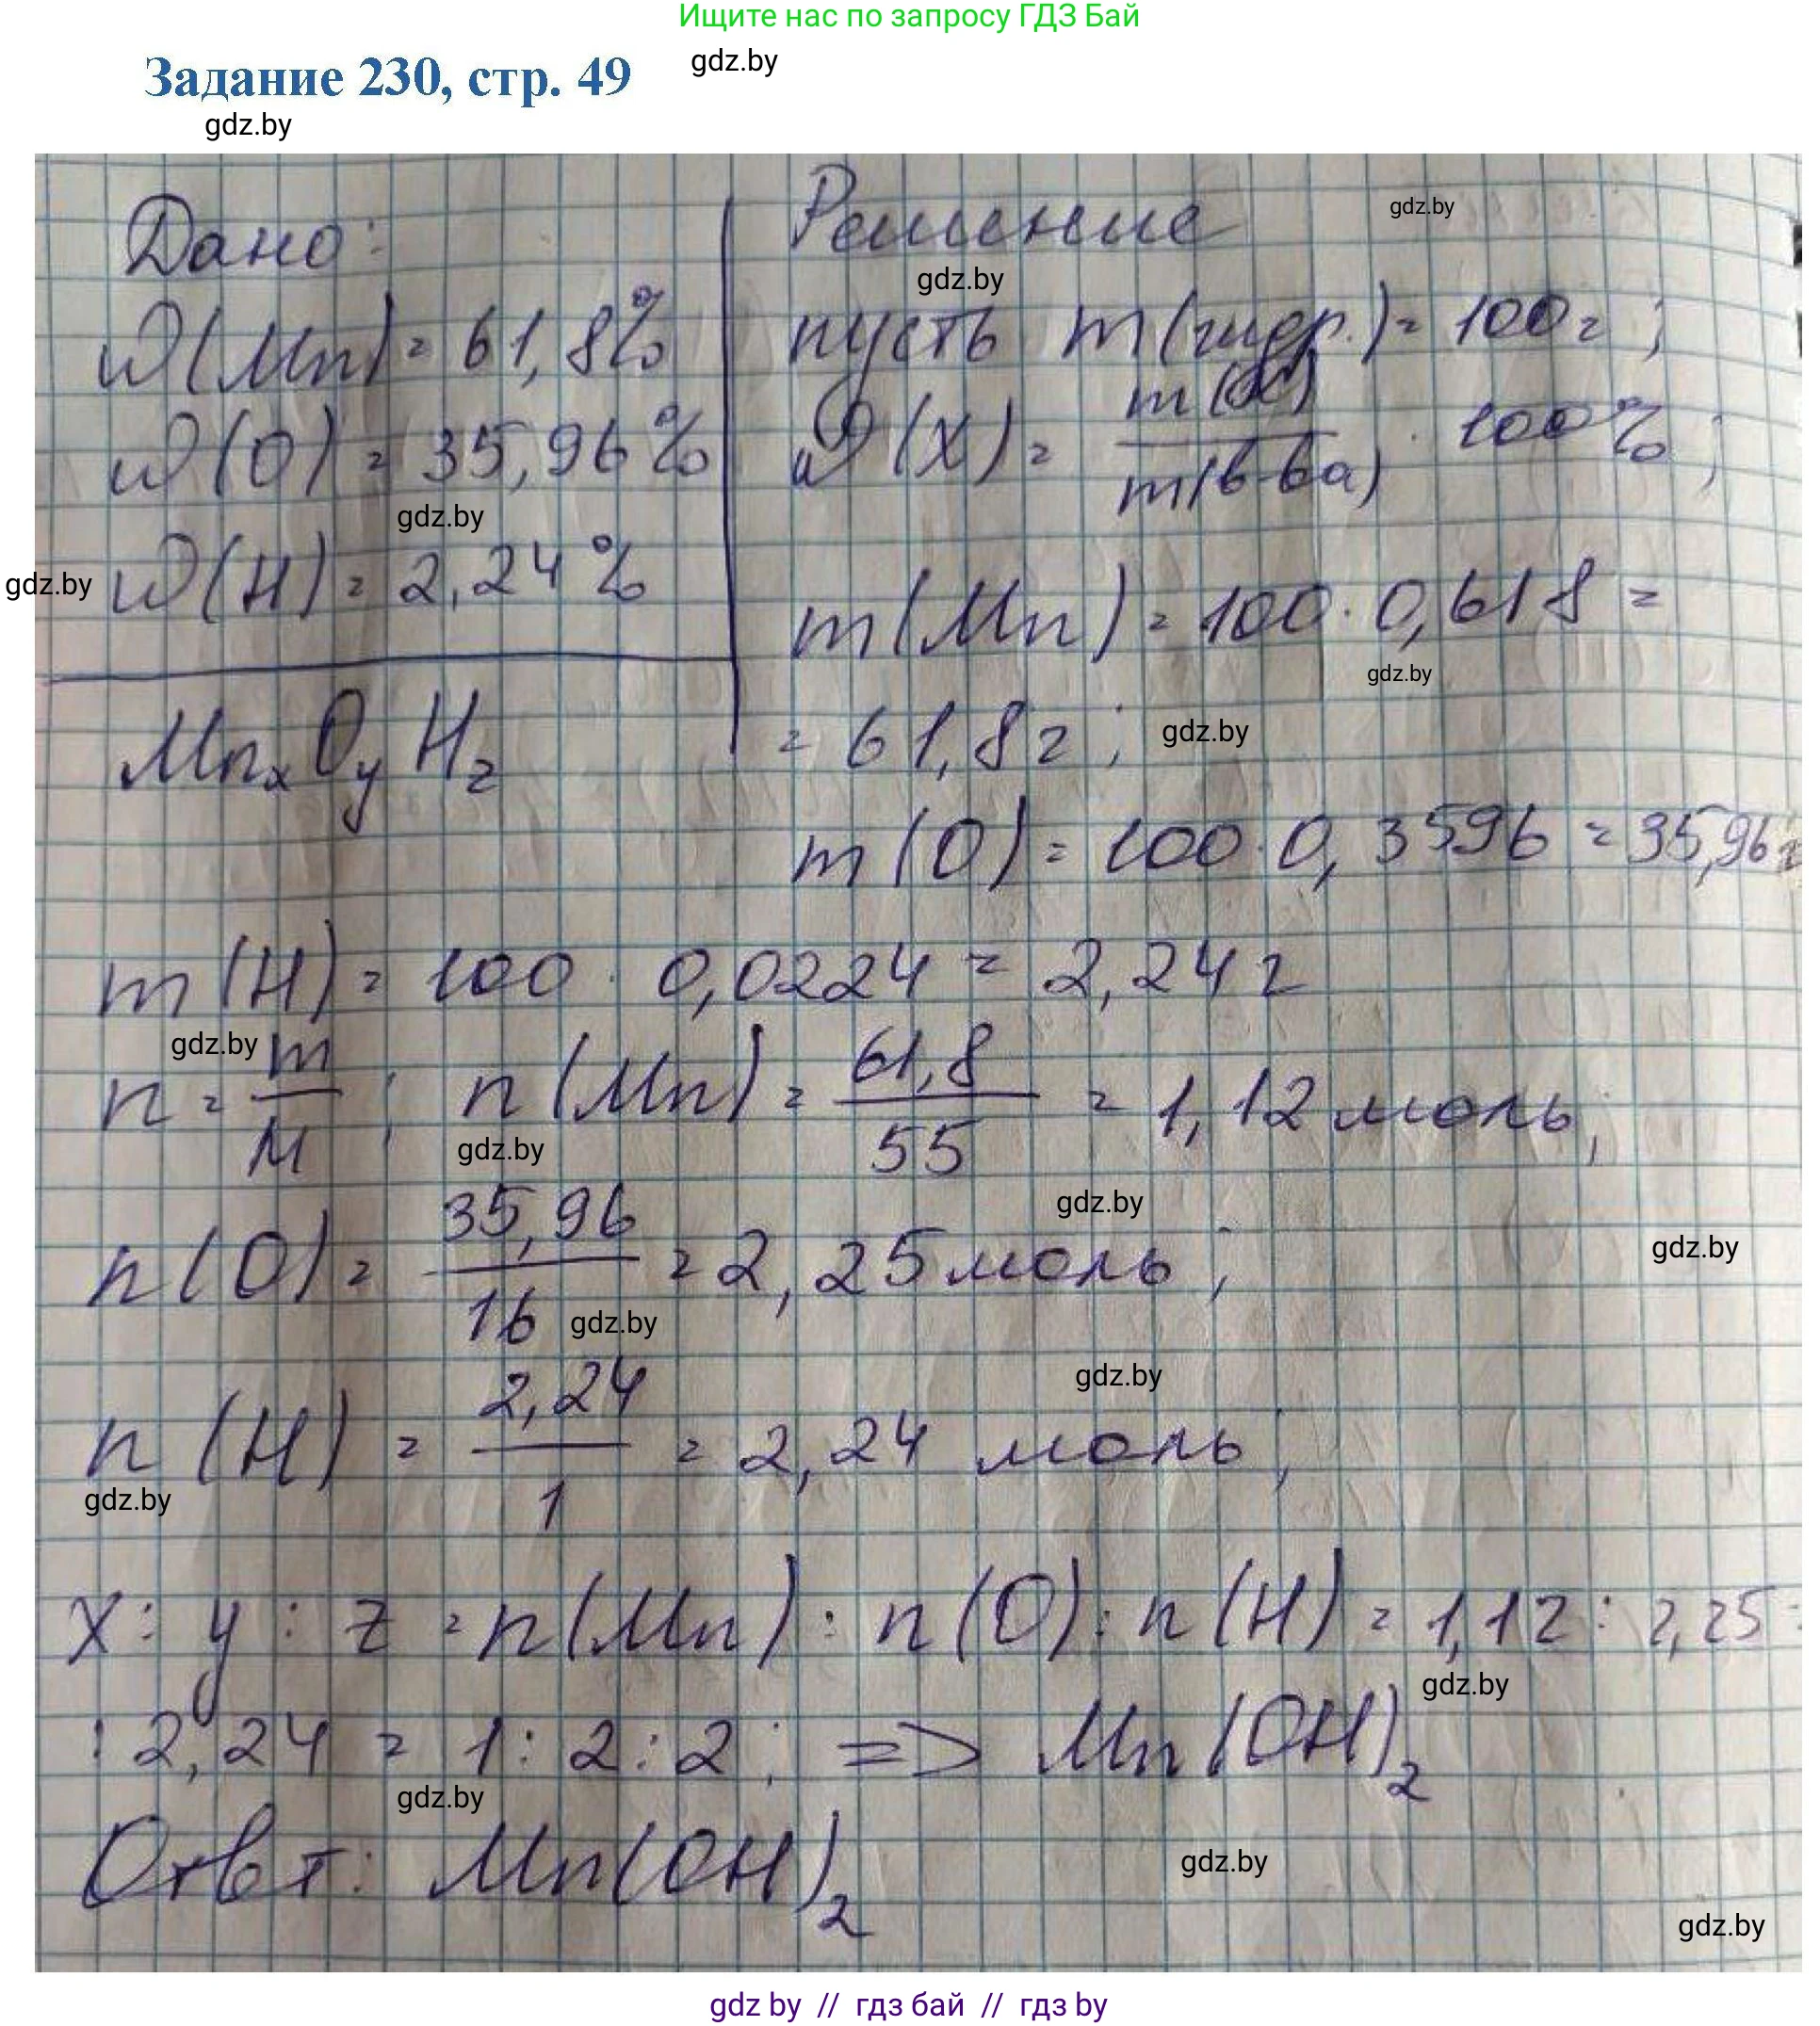 Ищите нас по запросу ГДЗ Бай
gdz.by
Задание 230, стр. 49
gdz.by
Дано:
ω(Mn) = 61,8%
ω(O) = 35,96%
gdz.by
gdz.by
ω(H) = 2,24%
MnxOyHz
Решение
gdz.by
gdz.by
пусть m(гидр.) = 100г;
ω(X) = m(X)/m(в-ва) · 100%;
m(Mn) = 100 · 0,618 =
gdz.by
= 61,8г;
gdz.by
m(O) = 100 · 0,3596 = 35,96г
m(H) = 100 · 0,0224 = 2,24г
gdz.by
n = m/M; n(Mn) = 61,8/55 = 1,12 моль;
gdz.by
gdz.by
n(O) = 35,96/16 = 2,25 моль;
gdz.by
gdz.by
gdz.by
n(H) = 2,24/1 = 2,24 моль;
gdz.by
x : y : z = n(Mn) : n(O) : n(H) = 1,12 : 2,25 :
gdz.by
: 2,24 = 1 : 2 : 2; => Mn(OH)2
gdz.by
Ответ: Mn(OH)2
gdz.by
gdz.by
gdz by // гдз бай // гдз by